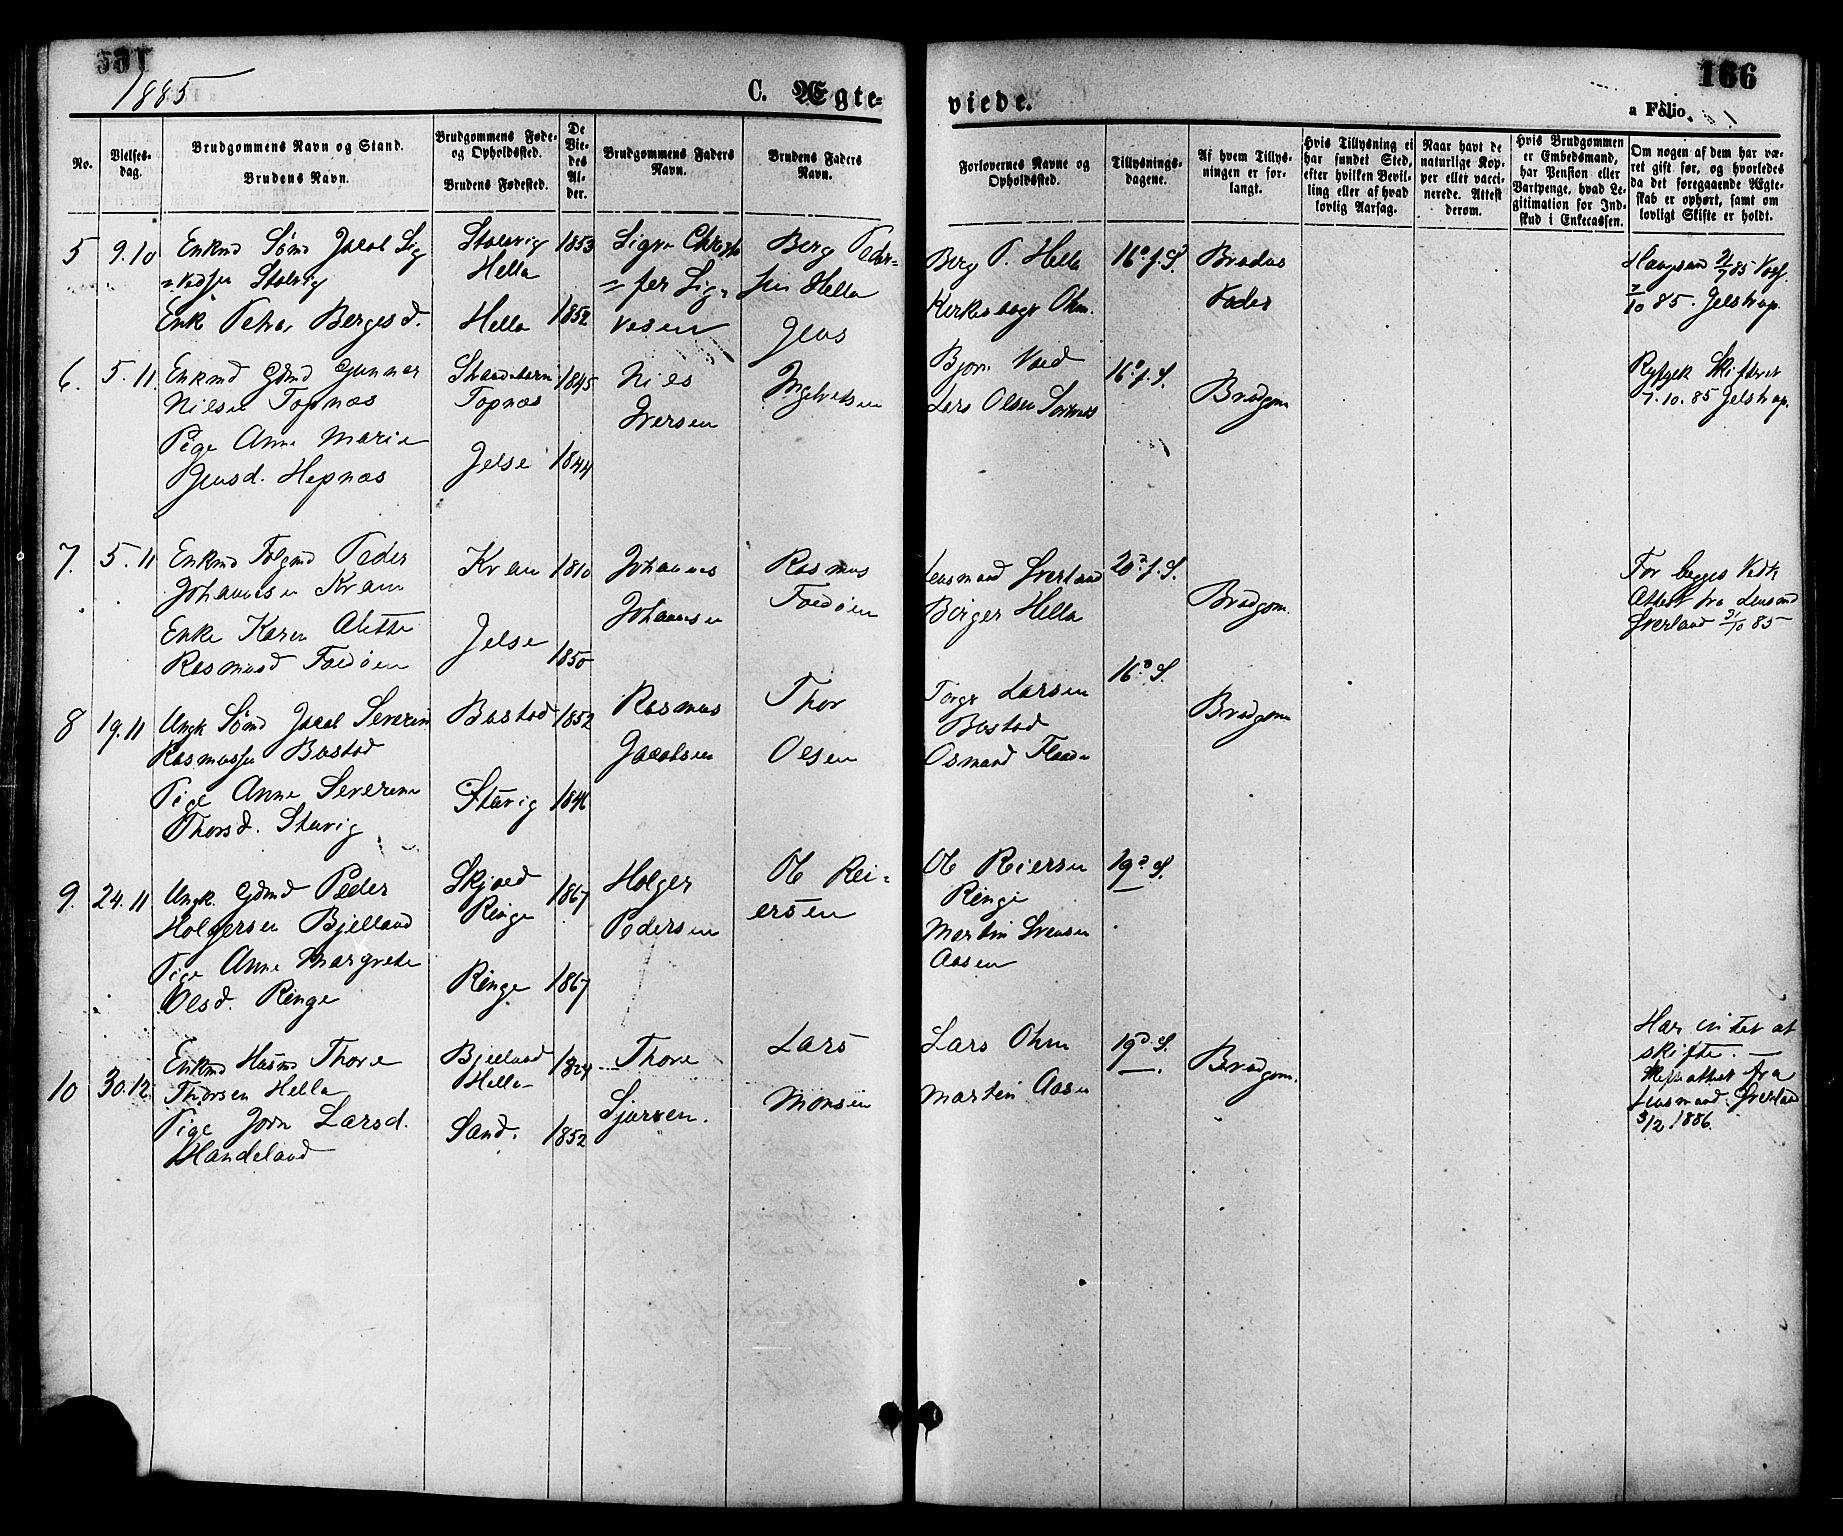 1885
C. Ægte-
viede.
166
a Folio.
No.
Vielses-
dag.
Brudgommens Navn og Stand.
Brudens Navn.
Brudgommens Føde-
og Opholdssted.
Brudens Fødested.
De
Vie-
des
Al-
der.
Brudgommens Faders
Navn.
Brudens Faders
Navn.
Forlovernes Navne og
Opholdssted.
Tillysnings-
dagene.
Af hvem Tillys-
ningen er for-
langt.
Hvis Tillysning ei
har fundet Sted,
efter hvilken Bevil-
ling eller af hvad
lovlig Aarsag.
Naar havt de
naturlige Kop-
per eller vacci-
nerede. Attest
derom.
Hvis Brudgommen
er Embedsmand,
har Pension eller
Vartpenge, hvad Le-
gitimation for Ind-
skud i Enkecassen.
Om nogen af dem har væ-
ret gift før, og hvorledes
da det foregaaende Ægte-
skab er ophørt, samt om
lovligt Skifte er holdt.
5 9.10 Enkmd Sømd Jacob Sig
Enke Petra Bergesd.
Hella
Hella
1853
1852
Sigve Christo
= fer Sig-
vesen
Berg Peder-
sen Hella
Jens
Berg P. Hella
Kirkesanger Ohm.
16d. f. S.
Brudes
Fader
85. Jelstrup.
6. 5.11 Enkmd Gdmd Gunnar
Nilsen Topnæs
Pige Anne Marie
Jensd. Hepnæs
Topnæs
Jelse
1845
1844
Nils
Iversen
Bjørn
Lars Olsen
16d. f. S.
Brudgom
7.10.85 Jelstrup.
7. 5.11 Enkmd Følgmd Peder
Johannesen Kram
Enke Karen Alette
Rasmusd Foedøen
Kram
Jelse
1810
1850
Johannes
Johannesen
Rasmus
Foedøen
Lensmand Sverland
Børger Hella
20d. f. S.
Brudgom.
For begges Vedk
Attest fra Lensmd
Sverland 31/10 85
8 19.11 Ungk Sømd Jacob Severin
Rasmussen Bastad
Pige Anne Severine
Thorsd. Stavig
Bastad
Stavig
1852
1846
Rasmus
Jacobsen
Thor
Olsen
Torger Larsen
Bastad
Osmand
16d. S.
Brudgom
9. 24.11 Ungk. Gdmd Peder
Holgersen Bjelland
Pige Anne Margrete
Olsd. Ringe
Skjoed
Ringe
Ringe
1867
1867
Holger
Pedersen
Ole Rei-
ersen
Ole Reiersen
Ringe
Martin Svensen
Aasen
19d. S.
10 30.12. Enkmd Husmd Thore
Thorsen Hella
Pige Jorn Larsd.
Handeland
Bjelland
Hella
Sand.
1824
1852
Thore
Sjursen.
Lars
Monsen
Lars Ohm
Martin Aasen
19d. S.
Brudgom.
Har intet at
skifte. —
Skifteattest fra
Lensmand Sverland
3/2 1886.